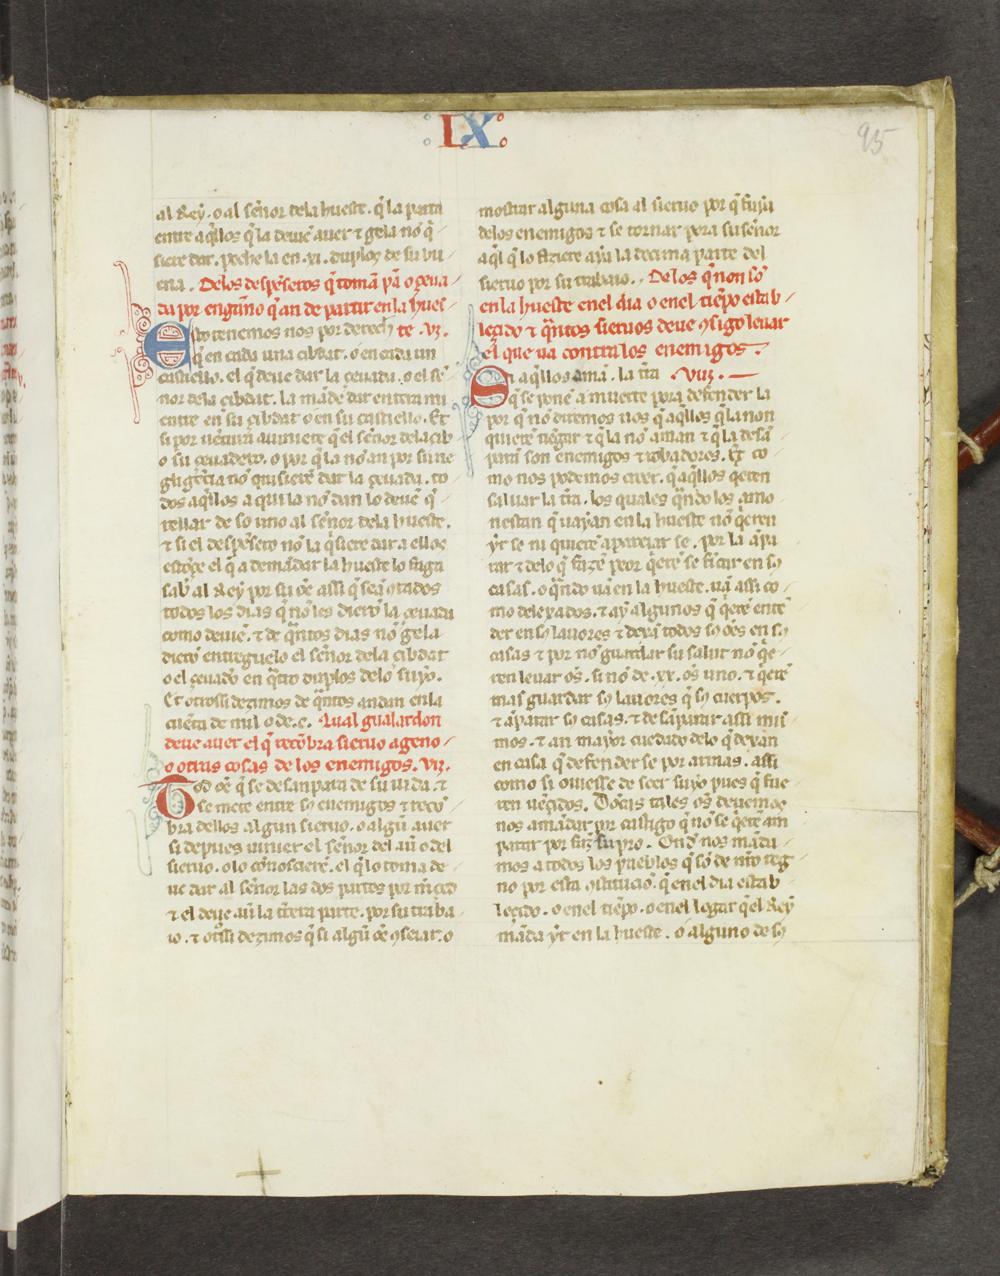 IX
95
al Rey. o al señor dela hueste. q̃ la parta
entre aq̃llos q̃ la deuẽ auer ⁊ gela nõ q̃
siere dar. peche la en .xi. duplos de su bu
ena. Delos despẽseros q̃ tomã pã o çeua
da por engãno q̃ an de partir en la hues
Esto tenemos nos por derech te .vj.
q̃ en cada una cibdat. o en cada un
castiello. el q̃ deue dar la çeuada. o el se
nor dela cibdat. la mãde dar entera mi
entre en su çibdat o en su castiello. Et
si por uẽtura auiniere q̃ el señor dela çib
o su çeuadero. o por q̃ la nõ an por su ne
gligẽcia nõ quisierẽ dar la çeuada. to
dos aq̃llos a qui la nõ dan lo deuẽ q̃
rellar de so uno al señor dela hueste.
⁊ si el despẽsero nõ la q̃siere dar a ellos
estõçe el q̃ a demãdar la hueste lo faga
sab̃ al Rey por su oẽ assi q̃ seã ɔtados
todos los dias q̃ nõ les dierõ la çeuada
como deuiẽ. ⁊ de q̃ntos dias nõ gela
dierõ entreguelo el señor dela çibdat
o el çeuadõ en q̃tro duplos delo suyo.
Et otrossi dezimos de q̃ntos andan en la
cuẽta de mil o de .c. Qual gualardon
deue auer el q̃ recõbra sieruo ageno
o otras cosas de los enemigos. vij.
Tod oẽ q̃ se desanpara de su uida. ⁊
se mete entre sꝯ enemigos ⁊ recõ
bra dellos algun sieruo. o algũ auer
si depues uiniere el señor del au͂ o del
sieruo. o lo coñoscierẽ. el q̃ lo toma de
ue dar al señor las dos partes por m̃ced
⁊ el deue au͂ la t̃cera parte. por su traba
io. ⁊ ot̃ssi dezimos q̃ si algũ oẽ ɔseiar. o
mostrar alguna cosa al sieruo por q̃ fuya
delos enemigos ⁊ se tornar pora su señor
aq̃l q̃ lo fiziere aya la decima parte del
sieruo por su trabaio. Delos q̃ non sõ
en la hueste enel dia o enel tiẽpo estab
leçido ⁊ q̃ntos sieruos deue ɔsigo leuar
el que ua contra los enemigos.
Sin aq̃llos ama. la t̃ra .viij.
q̃ se pone a muerte pora defender la
por q̃ nõ diremos nos q̃ aq̃llos q̃ la non
quierẽ uẽgar ⁊ q̃ la nõ aman ⁊ q̃ la desã
paran son enemigos ⁊ robadores. Et co
mo nos podemos creer. q̃ aq̃llos q̃ren
saluar la t̃ra. los quales q̃ndo los amo
nestan q̃ uayan en la hueste nõ q̃eren
yr se ni quierẽ apareiar se. por la ayu
dar ⁊ delo q̃ fazẽ peor q̃erẽ se fincar en sꝯ
casas. o q̃ndo uã en la hueste. uã assi co
mo deleyados. ⁊ ay algunos q̃ q̃erẽ ente
der en sꝯ lauores ⁊ dexã todos sꝯ oẽs en sꝯ
casas ⁊ por nõ guardar su salut nõ q̃e
ren leuar oẽs. si nõ de .xx. oẽs uno. ⁊ q̃erẽ
mas guardar sꝯ lauores q̃ sꝯ cuerpos.
⁊ ãparar sꝯ casas. ⁊ desãparar assi mis
mos. ⁊ an mayor cuedado delo q̃ dexan
en casa q̃ defender se por armas. assi
como si ouiesse de seer suyo pues q̃ fue
ren uẽçidos. Onde a tales oẽs deuemos
nos amãdar por castigo q̃ nõ se q̃erẽ am
parar por faz̃ su pro. Ond̃ nos mãda
mos a todos los pueblos q̃ sõ de nr̃o reg
no por esta ɔstituciõ. q̃ enel dia estab
leçido. o enel tiẽpo. o enel logar q̃ el Rey
mãda yr en la hueste. o alguno de sꝯ